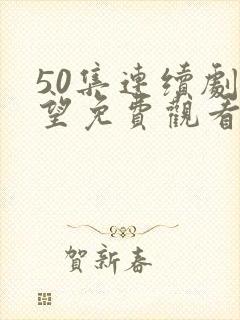 50集連續劇
望免費觀看
賀新春